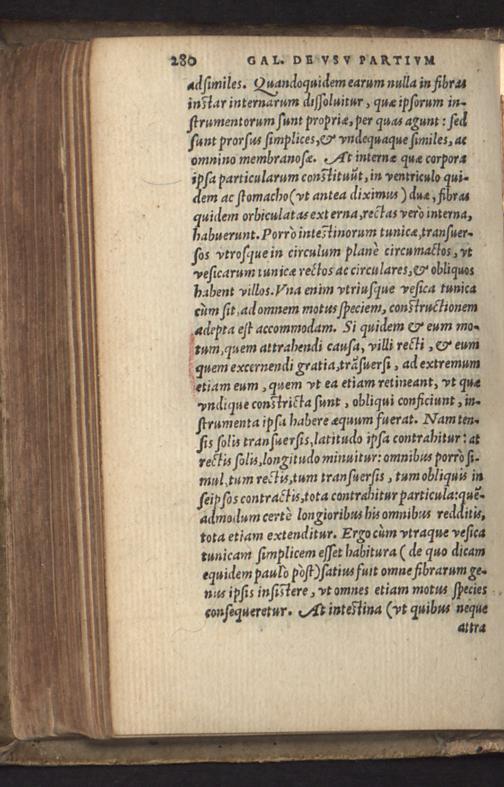 280 GAL. DE VSV PARTIVM
adsimiles. Quandoquidem earum nulla in fibras
instar internarum dissoluitur, quæ ipsorum in-
strumentorum sunt propriæ, per quas agunt: sed
sunt prorsus simplices, & vndequaque similes, ac
omnino membranosæ. At internæ quæ corpora
ipsa particularum constituũt, in ventriculo qui-
dem ac stomacho (vt antea diximus) duæ, fibras
quidem orbiculatas externa, rectas verò interna,
habuerunt. Porrò intestinorum tunicæ, transuer-
sos vtrosque in circulum planè circumactos, vt
vesicarum tunicæ rectos ac circulares, & obliquos
habent villos. Vna enim vtriusque vesica tunica
cùm sit, ad omnem motus speciem, constructionem
adepta est accommodam. Si quidem & eum mo-
tum, quem attrahendi causa, villi recti, & eum
quem excernendi gratia, trãsuersi, ad extremum
etiam eum, quem vt ea etiam retineant, vt quæ
vndique constricta sunt, obliqui conficiunt, in-
strumenta ipsa habere æquum fuerat. Nam ten-
sis solis transuersis, latitudo ipsa contrahitur: at
rectis solis, longitudo minuitur: omnibus porrò si-
mul, tum rectis, tum transuersis, tum obliquis in
seipsos contractis, tota contrahitur particula: quẽ-
admodum certè longioribus his omnibus redditis,
tota etiam extenditur. Ergo cùm vtraque vesica
tunicam simplicem esset habitura (de quo dicam
equidem paulò pòst) satius fuit omne fibrarum ge-
nus ipsis insistere, vt omnes etiam motus species
consequeretur. At intestina (vt quibus neque
attra